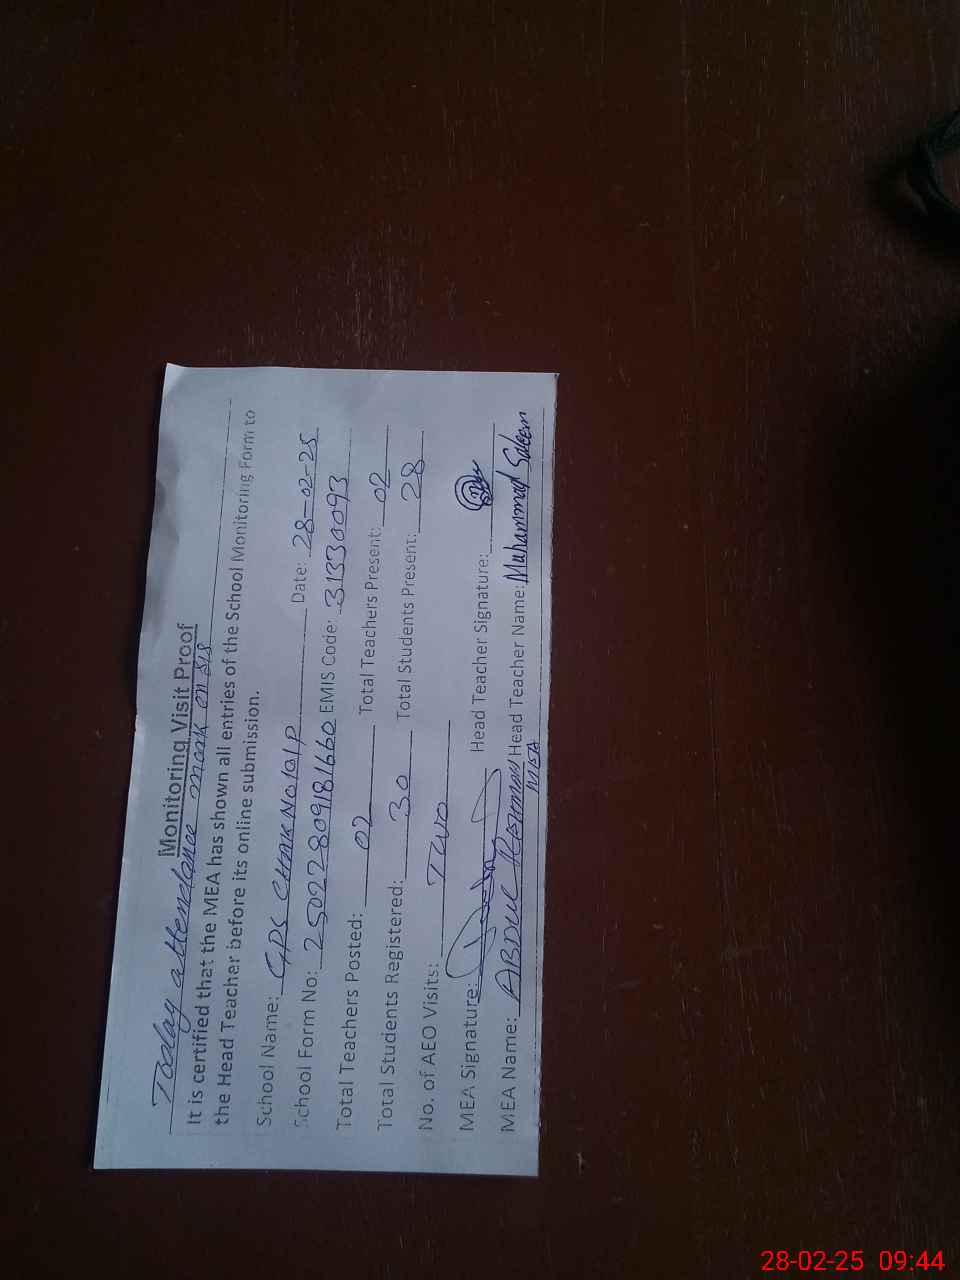 Monitoring Visit Proof
Today attendance mark on SIS
It is certified that the MEA has shown all entries of the School Monitoring Form to
the Head Teacher before its online submission.
School Name: GPS CHAK NO 101P Date: 28-02-25
School Form No: 25022809181660 EMIS Code: 31330093
Total Teachers Posted: 02 Total Teachers Present: 02
Total Students Registered: 30 Total Students Present: 28
No. of AEO Visits: Two
MEA Signature: Head Teacher Signature:
MEA Name: ABDUL REHMAN Head Teacher Name: Muhammad Saleem
28-02-25 09:44